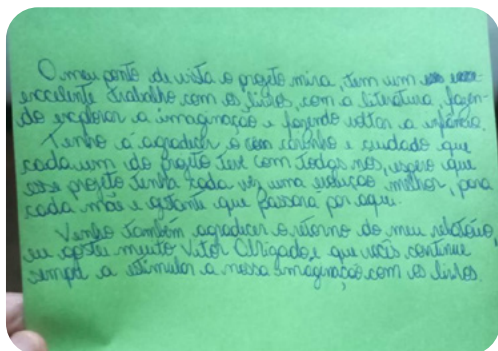 O meu ponto de vista o projeto mira, tem um
excelente trabalho com os livros, com a literatura, fazen-
do explorar a imaginação e fazendo voltar a infância.
Tenho a agradecer o com carinho e cuidado que
cada um do projeto teve com todas nos, espero que
esse projeto tenha cada vez uma evolução melhor, para
cada mãe e gestante que passara por aqui.
Venho também agradecer o retorno do meu relatório,
eu gostei muito Vitor Obrigado e que vocês continue
sempre a estimular a nossa imaginação com os livros.